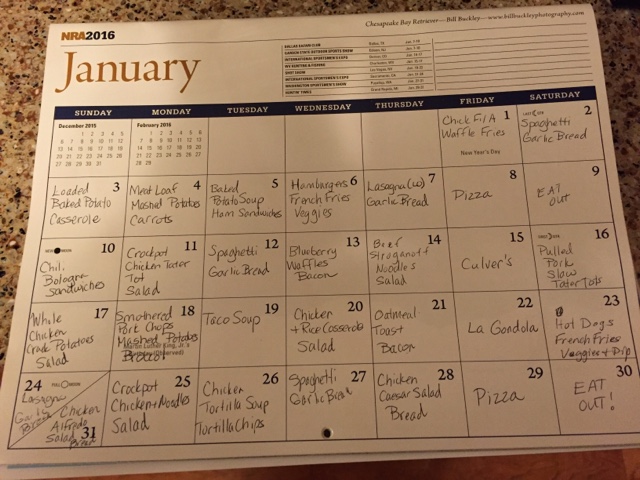 Chesapeake Bay Retriever—Bill Buckley—www.billbuckleyphotography.com
NRA2016
January
DALLAS SAFARI CLUB
GARDEN STATE OUTDOOR SPORTS SHOW
INTERNATIONAL SPORTSMEN'S EXPO
SHOT SHOW
INTERNATIONAL SPORTSMEN'S EXPO
WASHINGTON SPORTSMEN'S SHOW
SUNDAY MONDAY TUESDAY WEDNESDAY THURSDAY FRIDAY SATURDAY
December 2015
1 2 3 4 5
6 7 8 9 10 11 12
13 14 15 16 17 18 19
20 21 22 23 24 25 26
27 28 29 30 31
February 2016
1 2 3 4 5 6
7 8 9 10 11 12 13
14 15 16 17 18 19 20
21 22 23 24 25 26 27
28 29
1
Chick Fil A
Waffle Fries
New Year's Day
2
Spaghetti
Garlic Bread
3
Loaded
Baked Potato
Casserole
4
Meat Loaf
Mashed Potatoes
Carrots
5
Baked
Potato Soup
Ham Sandwiches
6
Hamburgers
French Fries
Veggies
7
Lasagna (w)
Garlic Bread
8
Pizza
9
EAT
OUT
10
Chili
Bologna
Sandwiches
11
Crockpot
Chicken Tater
Tot
Salad
12
Spaghetti
Garlic Bread
13
Blueberry
Waffles
Bacon
14
Beef
Stroganoff
Noodles
Salad
15
Culver's
16
Pulled
Pork
Slaw
Tator Tots
17
Whole
Chicken
Crack Potatoes
Salad
18
Smothered
Pork Chops
Mashed Potatoes
Martin Luther King, Jr.'s
(Observed)
19
Taco Soup
20
Chicken
+ Rice Casserole
Salad
21
Oatmeal
Toast
Bacon
22
La Gondola
23
Hot Dogs
French Fries
Veggies + Dip
24
FULL MOON
Lasagna
Garlic
Bread
31
Chicken
Alfredo
Salad
Bread
25
Crockpot
Chicken + Noodles
Salad
26
Chicken
Tortilla Soup
Tortilla Chips
27
Spaghetti
Garlic Bread
28
Chicken
Caesar Salad
Bread
29
Pizza
30
EAT
OUT!